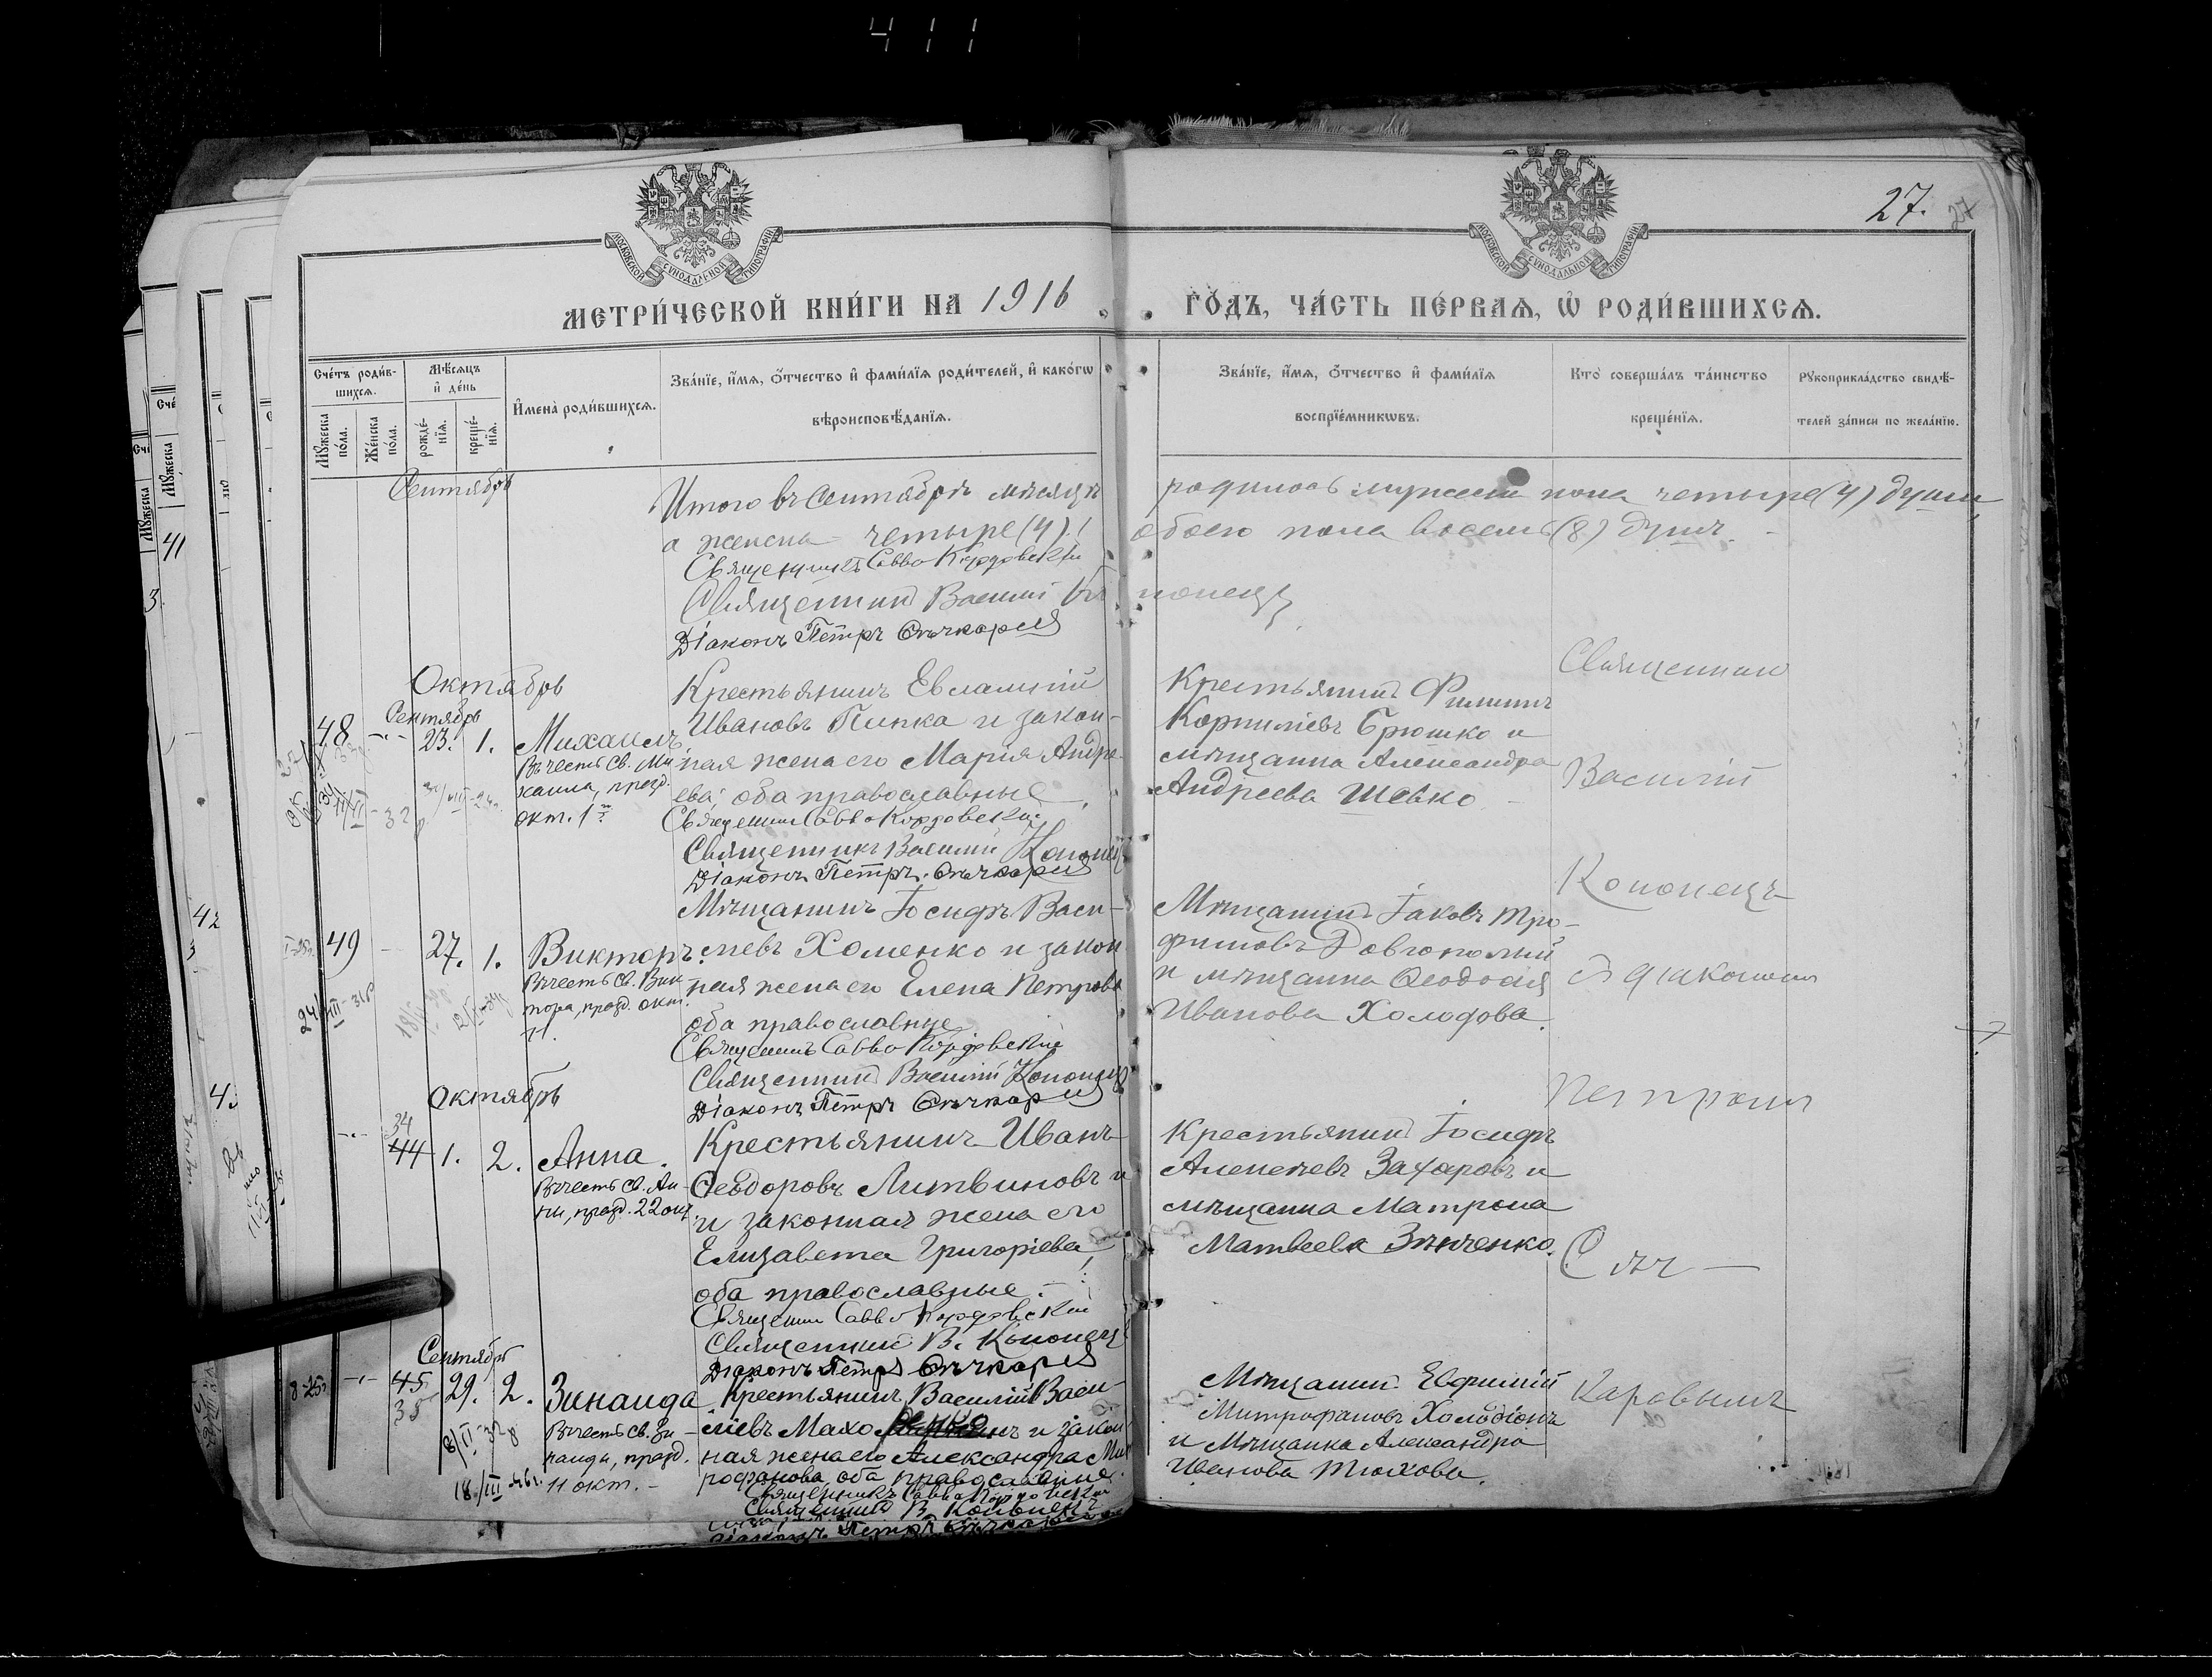 411
27.
МОСКОВСКОЙ СѴНОДАЛЬНОЙ ТИПОГРАФІИ
МОСКОВСКОЙ СѴНОДАЛЬНОЙ ТИПОГРАФІИ
МЕТРИ́ЧЕСКОЙ КНИ́ГИ НА 1916 ГО́ДЪ, ЧА́СТЬ ПЕ́РВАѦ, Ѡ҆ РОДИ́ВШИХСѦ.
Сче́тъ роди́вшихсѧ.
Мꙋжеска по́ла.
Же́нска по́ла.
Мѣ́сѧцъ и҆ де́нь
рожде́нїѧ.
креще́нїѧ.
И҆мена̀ роди́вшихсѧ.
Зва́нїе, и҆́мѧ, ѻ҆́тчество и҆ фами́лїѧ роди́телей, и҆ како́гѡ
вѣроисповѣ́данїѧ.
Зва́нїе, и҆́мѧ, ѻ҆́тчество и҆ фами́лїѧ
воспрїе́мникѡвъ.
Кто̀ соверша́лъ та́инство
креще́нїѧ.
Рꙋкоприкла́дство свидѣ́-
телей за́писи по жела́нїю.
Сентябрь
Итого въ Сентябрѣ мѣсяцѣ родилось мужеска пола четыре (4) души,
а женска четыре (4), обоего пола восемь (8) душъ.
Священникъ Савва Кордовскій
Священникъ Василій Кононецъ
Діаконъ Петръ Сѣчкарев
Октябрь
Сентябрь
48 -"- 23. 1. Михаилъ
Въ честь Св. Ми
хаила, празд.
окт. 1го
Крестьянинъ Евлампій
Ивановъ Пипка и закон-
ная жена его Марія Андре-
ева, оба православные.
Священникъ Савва Кордовскій
Священникъ Василій Кононецъ
Діаконъ Петръ Сѣчкарев
Крестьянинъ Филиппъ
Корниліевъ Брюшко и
мѣщанка Александра
Андреева Шевко
Священникъ
Василій
Кононецъ
49 - 27. 1. Викторъ.
Въ честь Св. Вик
тора, празд. окт.
11.
Мѣщанинъ Іосифъ Васи-
ліевъ Хоменко и закон
ная жена его Елена Петрова
оба православные
Священникъ Савва Кордовскій
Священникъ Василій Кононецъ
Діаконъ Петръ Сѣчкарев
Мѣщанинъ Іаковъ Тро-
фимовъ Довгополый
и мѣщанка Ѳеодосія
Иванова Холодова.
съ діакономъ
Петромъ
Октябрь
34
-"- 44 1. 2. Анна.
Въ честь Св. Ан-
ны, празд. 22 окт.
Крестьянинъ Иванъ
Ѳеодоровъ Литвиновъ и
и законная жена его
Елизавета Григоріева,
оба православные.
Священникъ Савва Кордовскій
Священникъ В. Кононецъ
Діаконъ Петръ Сѣчкарев
Крестьянинъ Іосифъ
Алексѣевъ Захаровъ и
мѣщанка Матрона
Матвеева Зѣнченко.
Сѣч-
Сентябрь
8-25 -"- 45 29. 2. Зинаида
35
Въ честь Св. Зи-
наиды, празд.
11 окт. -
Крестьянинъ Василій Васи-
ліевъ Махо и закон
ная жена его Александра Мит
рофанова, оба православные.
Священникъ Савва Кордовскій
Священникъ В. Кононецъ
Діаконъ Петръ Сѣчкарев
Мѣщанинъ Евфимій
Митрофановъ Холодіонъ
и Мѣщанка Александра
Иванова Тюхова.
каровымъ